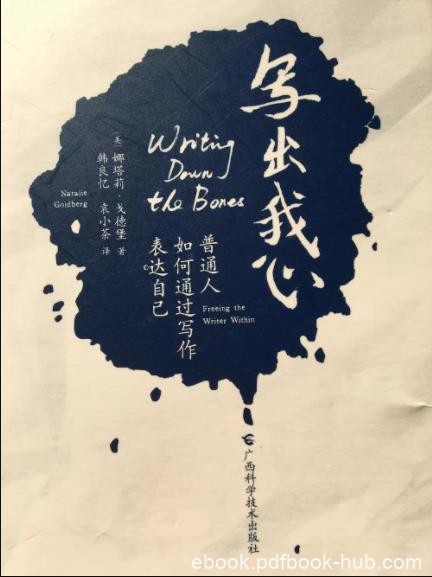 写出我心
Writing
Down
the Bones
普通人
如何通过写作
表达自己。
Freeing the
Writer Within
[美]娜塔莉·戈德堡 著
韩良忆 袁小茶 译
Natalie
Goldberg
广西科学技术出版社
ebook.pdfbook-hub.com